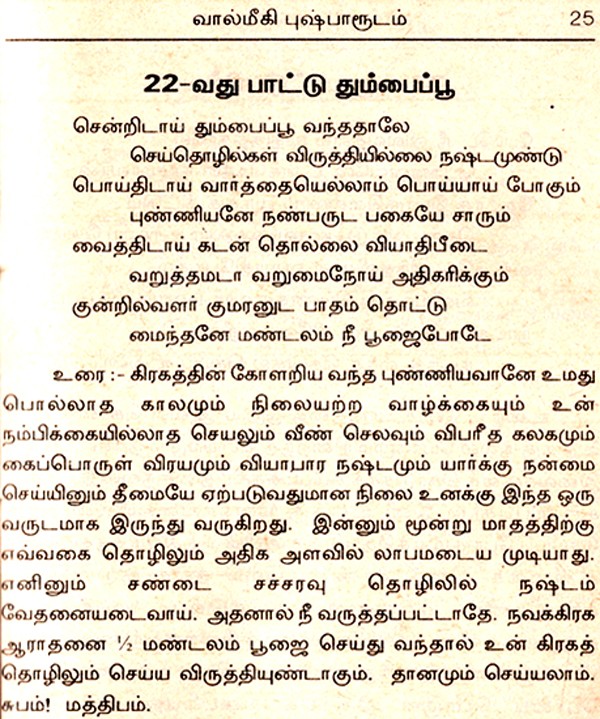 வால்மீகி புஷ்பாரூடம் 25
22-வது பாட்டு தும்பைப்பூ
சென்றிடாய் தும்பைப்பூ வந்ததாலே
செய்தொழில்கள் விருத்தியில்லை நஷ்டமுண்டு
பொய்திடாய் வார்த்தையெல்லாம் பொய்யாய் போகும்
புண்ணியனே நண்பருட பகையே சாரும்
வைத்திடாய் கடன் தொல்லை வியாதிபீடை
வறுத்தமடா வறுமைநோய் அதிகரிக்கும்
குன்றில்வளர் குமரனுட பாதம் தொட்டு
மைந்தனே மண்டலம் நீ பூஜைபோடே
உரை :- கிரகத்தின் கோளறிய வந்த புண்ணியவானே உமது
பொல்லாத காலமும் நிலையற்ற வாழ்க்கையும் உன்
நம்பிக்கையில்லாத செயலும் வீண் செலவும் விபரீத கலகமும்
கைப்பொருள் விரயமும் வியாபார நஷ்டமும் யார்க்கு நன்மை
செய்யினும் தீமையே ஏற்படுவதுமான நிலை உனக்கு இந்த ஒரு
வருடமாக இருந்து வருகிறது. இன்னும் மூன்று மாதத்திற்கு
எவ்வகை தொழிலும் அதிக அளவில் லாபமடைய முடியாது.
எனினும் சண்டை சச்சரவு தொழிலில் நஷ்டம்
வேதனையடைவாய். அதனால் நீ வருத்தப்பட்டாதே. நவக்கிரக
ஆராதனை ½ மண்டலம் பூஜை செய்து வந்தால் உன் கிரகத்
தொழிலும் செய்ய விருத்தியுண்டாகும். தானமும் செய்யலாம்.
சுபம்! மத்திபம்.